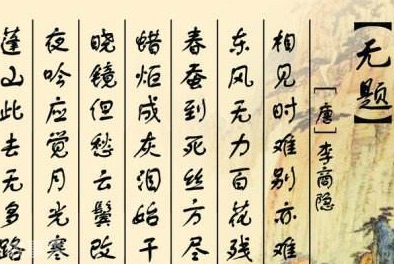 【无题】
[唐]李商隐
相见时难别亦难
东风无力百花残
春蚕到死丝方尽
蜡炬成灰泪始干
晓镜但愁云鬓改
夜吟应觉月光寒
蓬山此去无多路